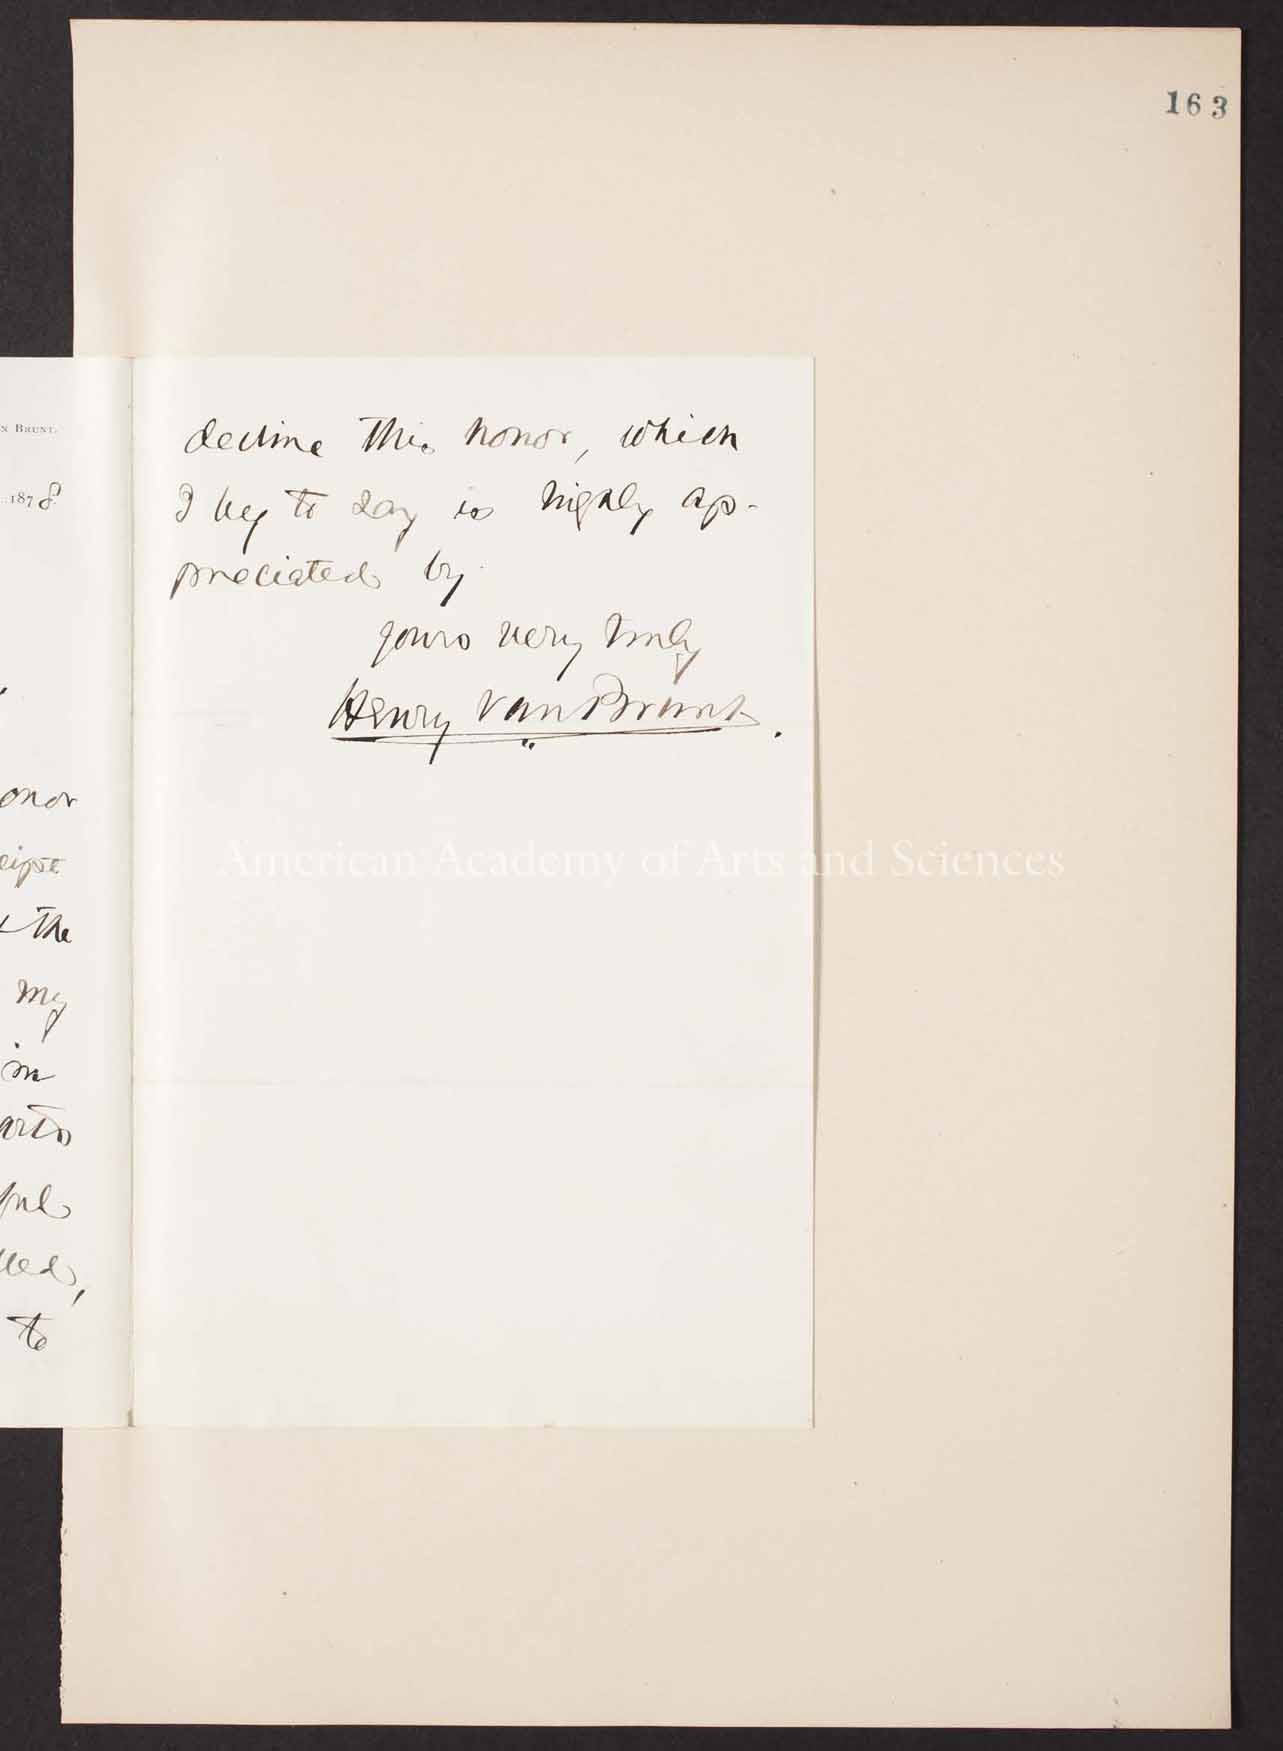 163
n Brunt.
187 8
onor
eipt
the
my
in
arts
ful
lled,
to
decline this honor, which
I beg to say is highly ap-
preciated by
yours very truly
Henry Van Brunt.
American Academy of Arts and Sciences